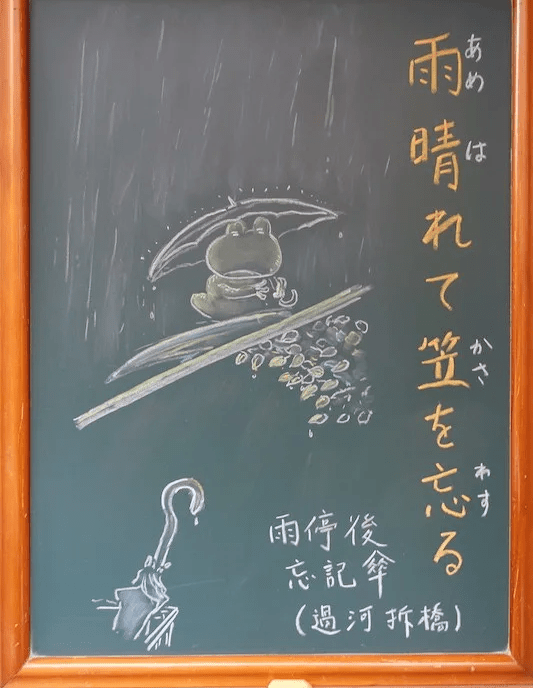 雨晴れて笠を忘る
あめ
は
かさ
わす
雨停後
忘記傘
(過河拆橋)